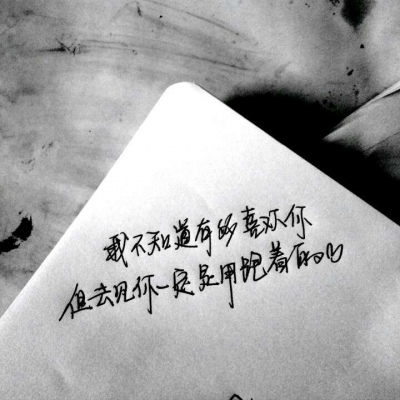 我不知道有多喜欢你
但去见你一定是用跑着的